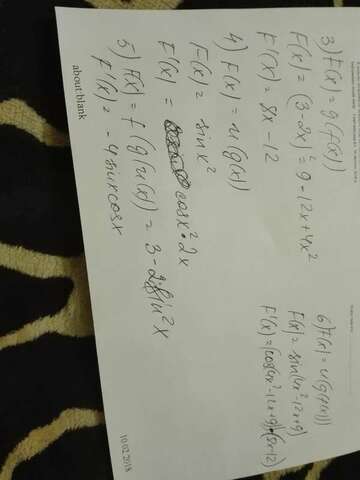 3) F(x) = g(f(x))
F(x) = (3-2x)² = 9-12x+4x²
F'(x) = 8x-12
4) F(x) = u(g(x))
F(x) = sin x²
F'(x) = cosx²·2x
5) F(x) = f(g(u(x)) = 3-2sin²x
F'(x) = -4sinxcosx
6) F(x) = u(g(f(x)))
F(x) = sin(4x²-12x+9)
F'(x) = (cos(4x²-12x+9))·(8x-12)
about:blank
10.02.2018